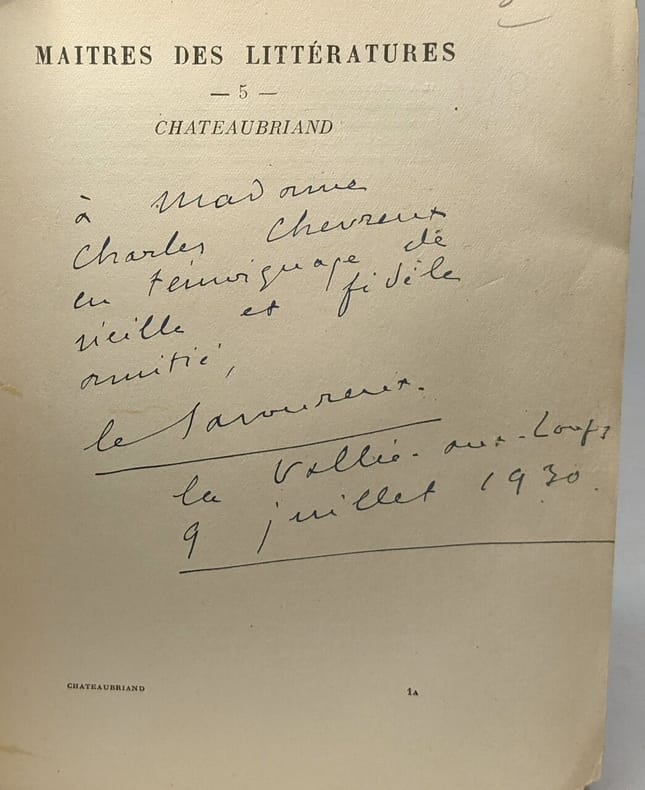 MAITRES DES LITTÉRATURES
— 5 —
CHATEAUBRIAND
à Madame
Charles Chevreux
en témoignage de
vieille et fidèle
amitié,
le Savoureux.
la Vallée-aux-Loups
9 juillet 1930.
CHATEAUBRIAND 1A